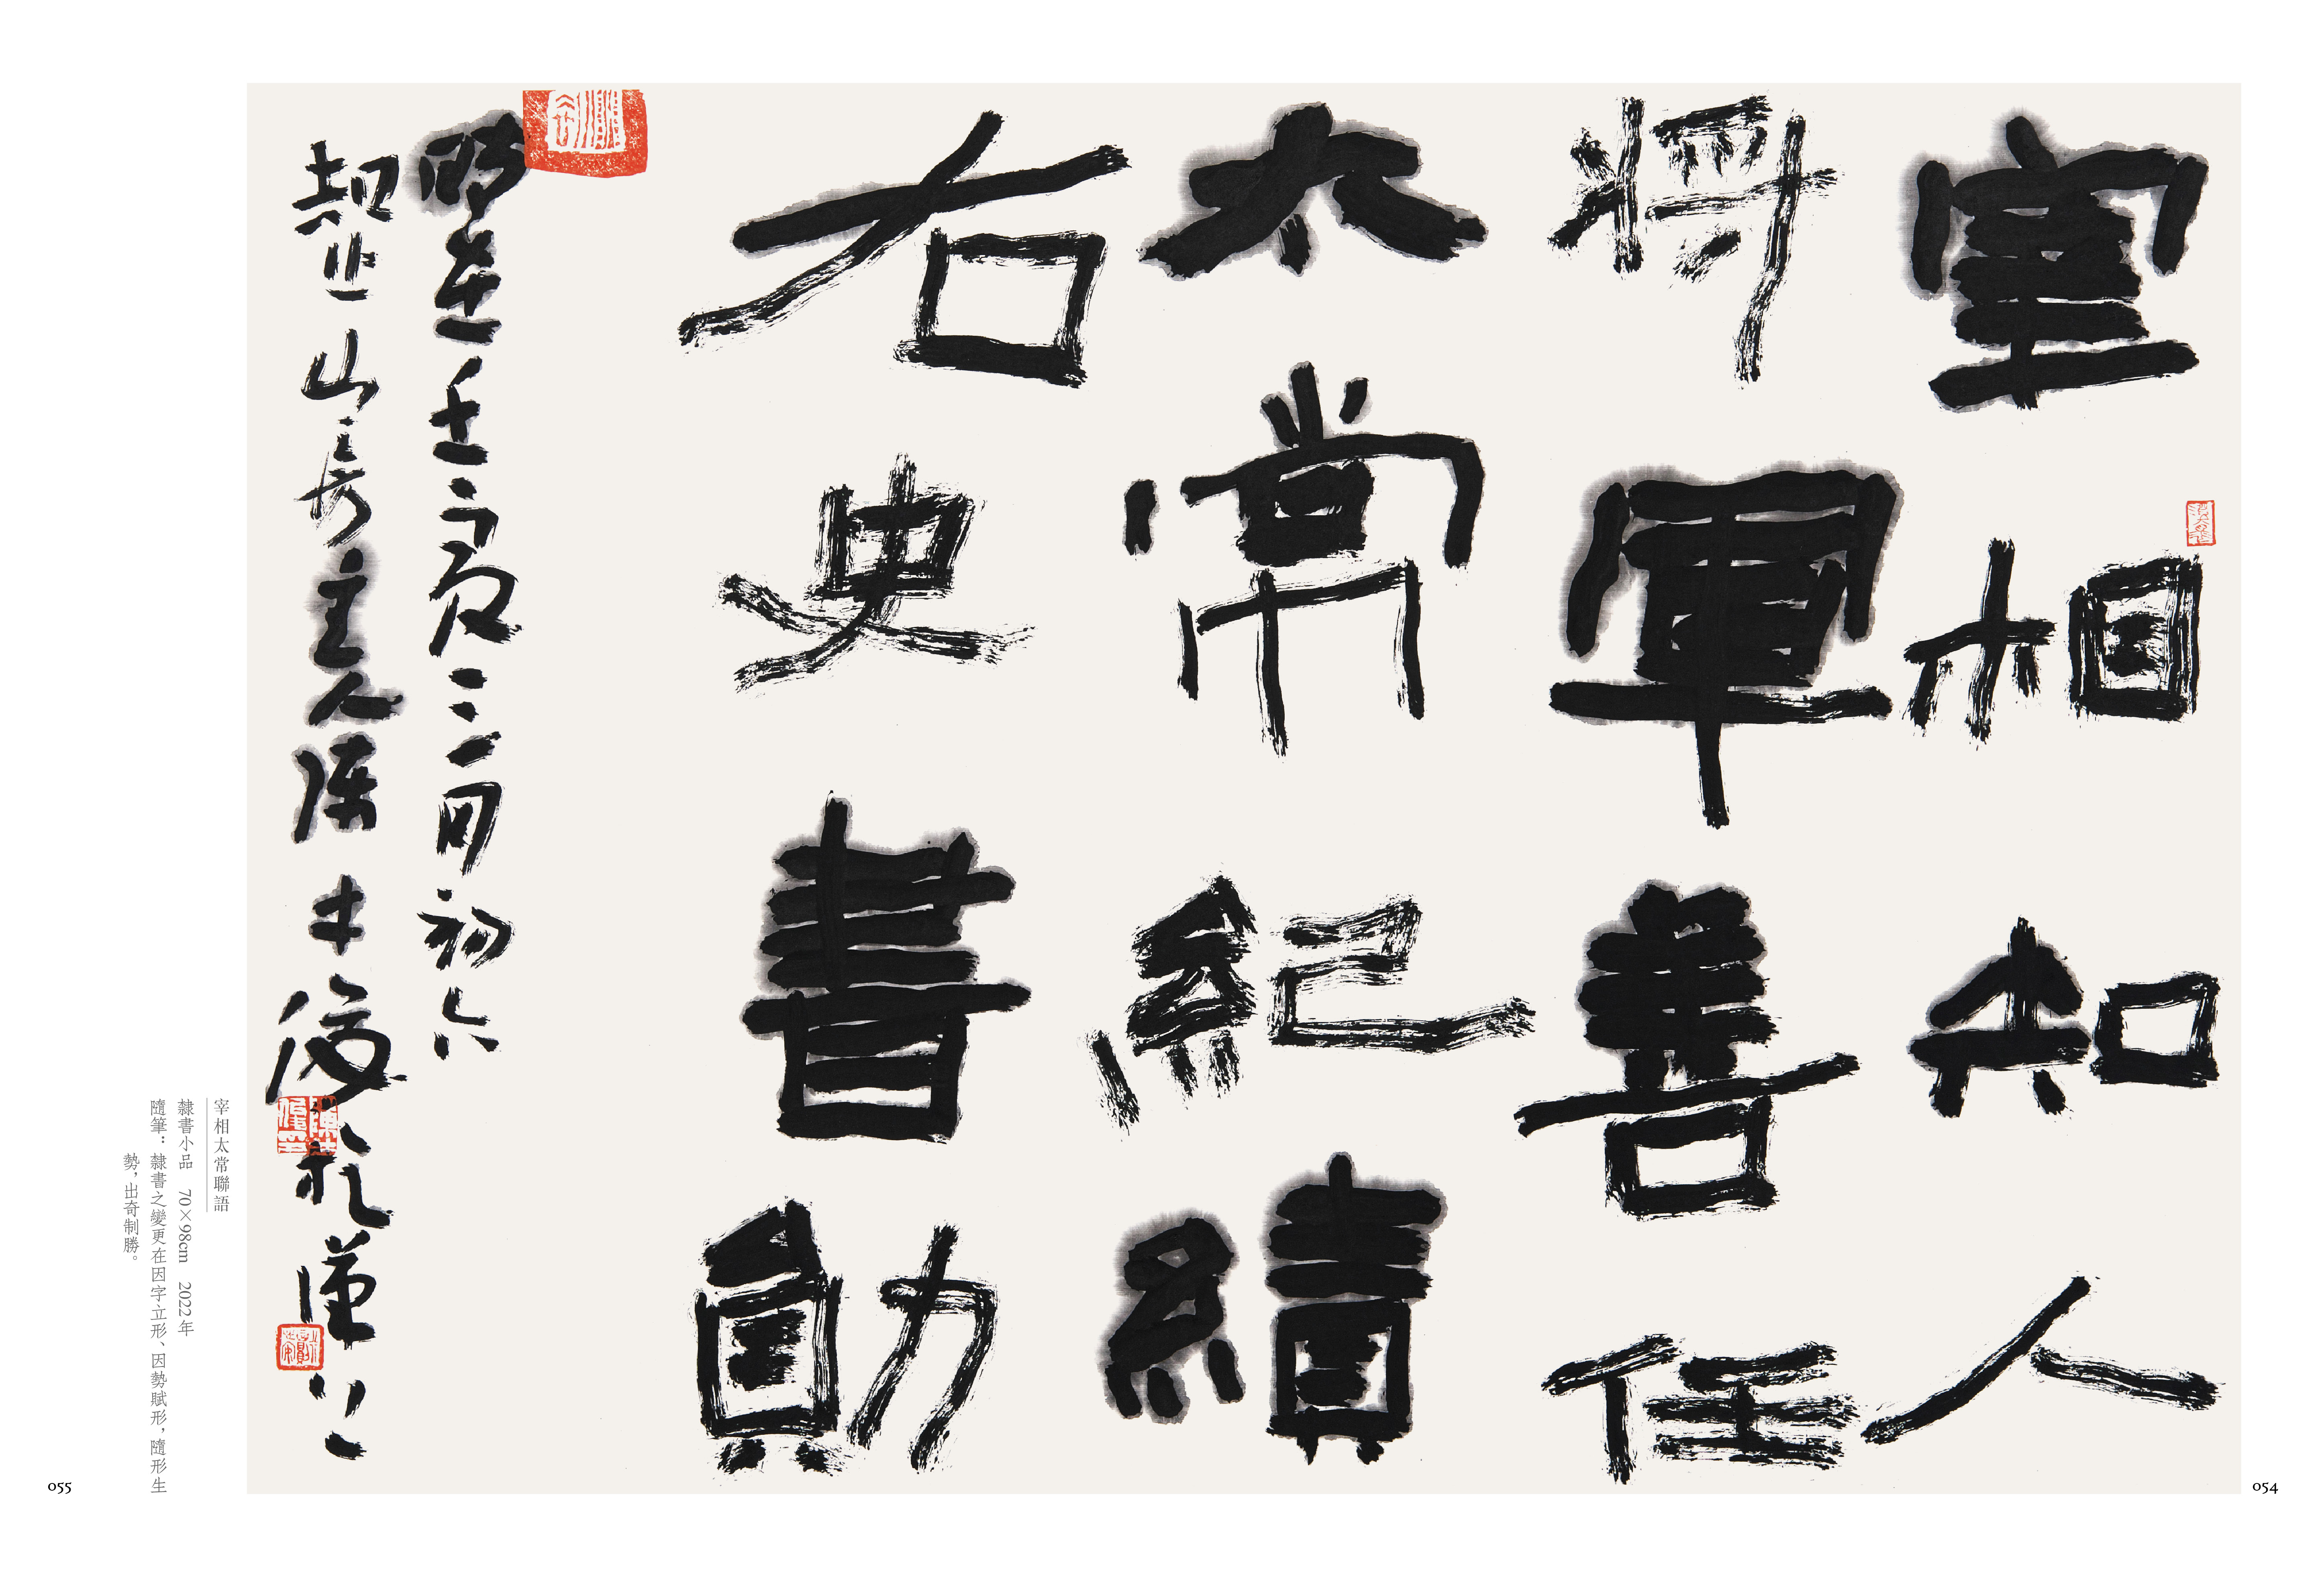 宰相知人
將軍善任
太常紀績
右史書勛
時在壬寅 月初六
山房主人陳 俊於
宰相太常聯語
隸書小品 70×98cm 2022年
隨筆：隸書之變更在因字立形、因勢賦形，隨形生
勢，出奇制勝。
054
055